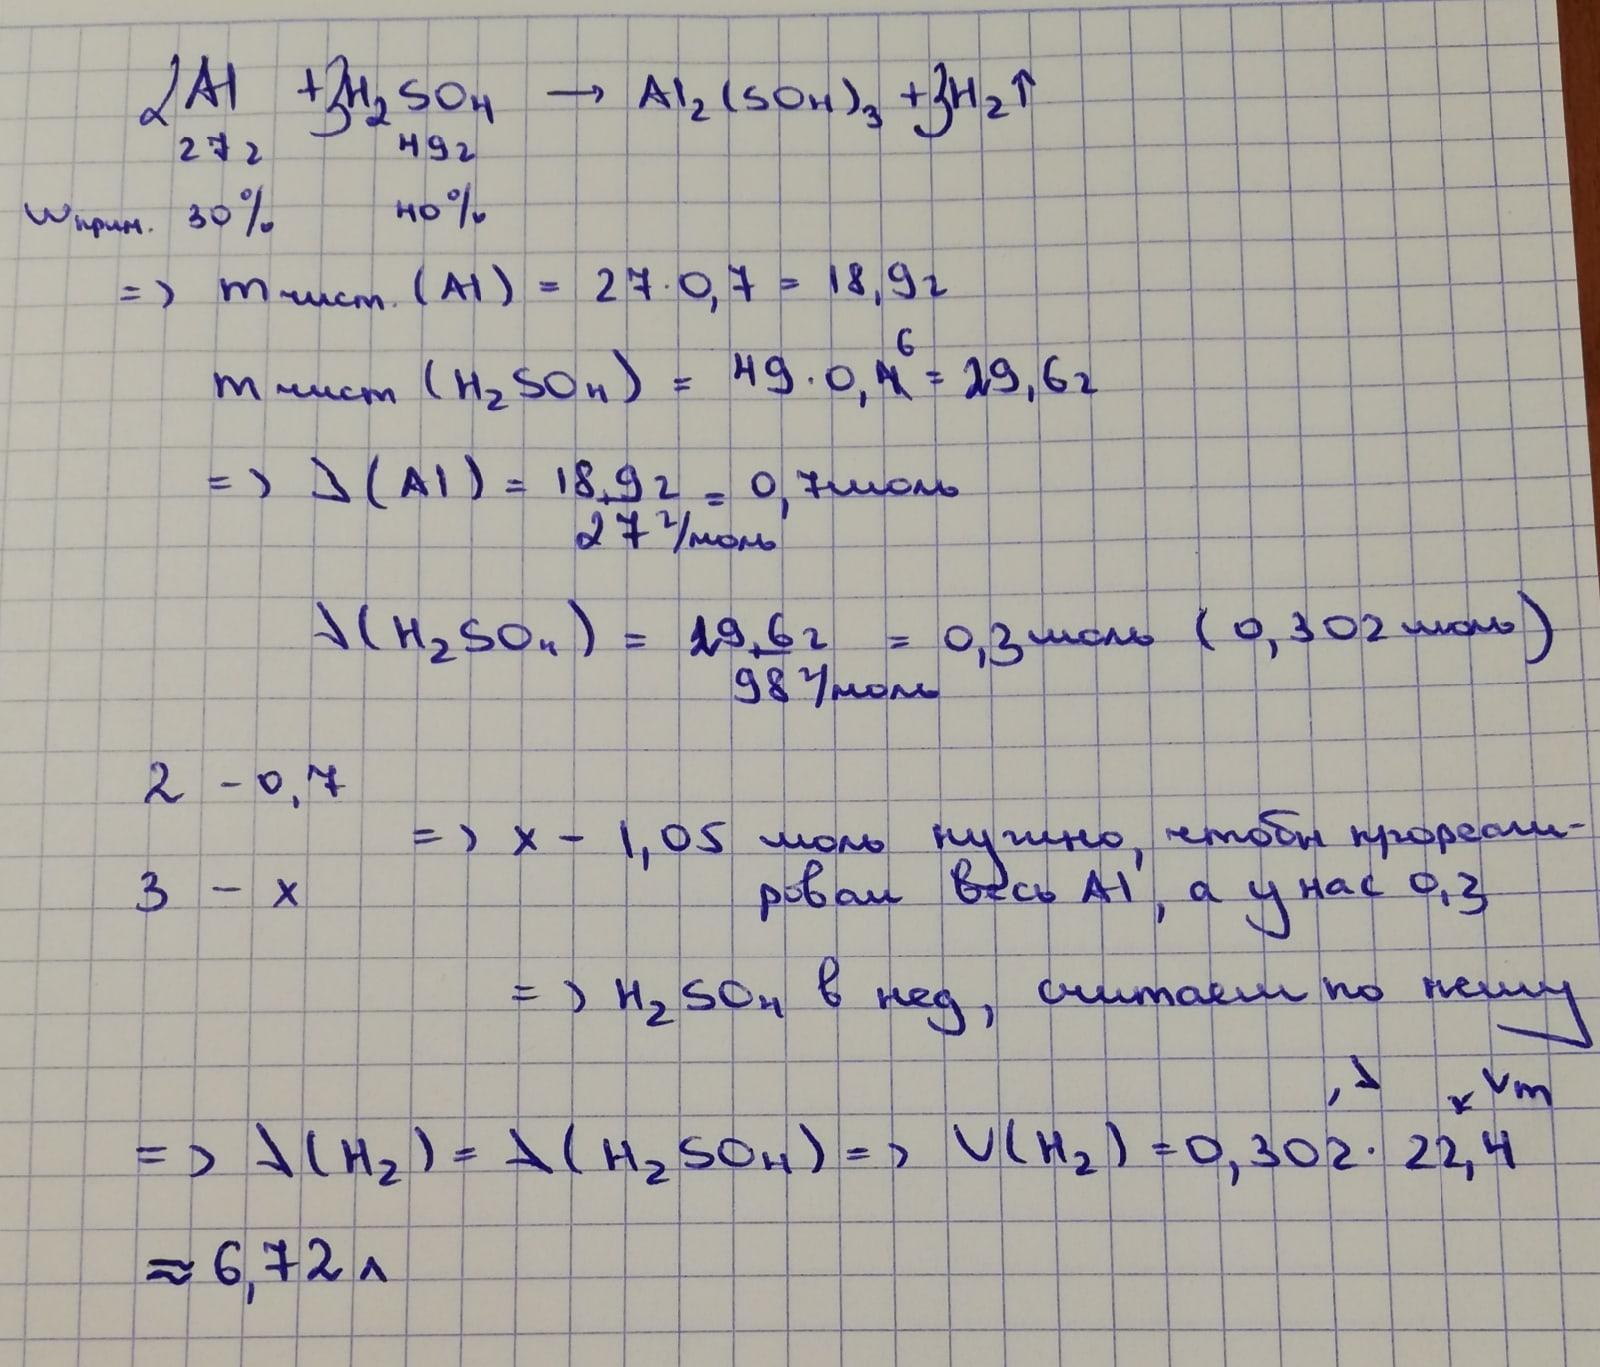 2Al + 3H₂SO₄ → Al₂(SO₄)₃ + 3H₂↑
27г 49г
Wприм. 30% 40%
=> m чист. (Al) = 27·0,7 = 18,9г
m чист (H₂SO₄) = 49·0,6 = 29,6г
=> λ(Al) = 18,9г / 27 г/моль = 0,7моль
λ(H₂SO₄) = 29,6г / 98 г/моль = 0,3моль (0,302моль)
2 – 0,7
=> x – 1,05 моль нужно, чтобы прореаги-
3 – x ровал весь Al, а у нас 0,3
=> H₂SO₄ в нед, считаем по нему
, λ × Vm
=> λ(H₂) = λ(H₂SO₄) => V(H₂) = 0,302 · 22,4
≈ 6,72 л